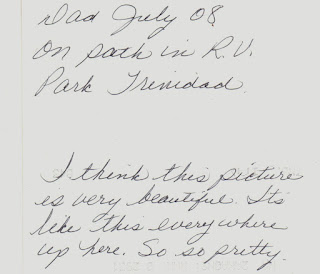 Dad July 08
On path in R.V.
Park Trinidad
I think this picture
is very beautiful. It's
like this everywhere
up here. So so pretty.